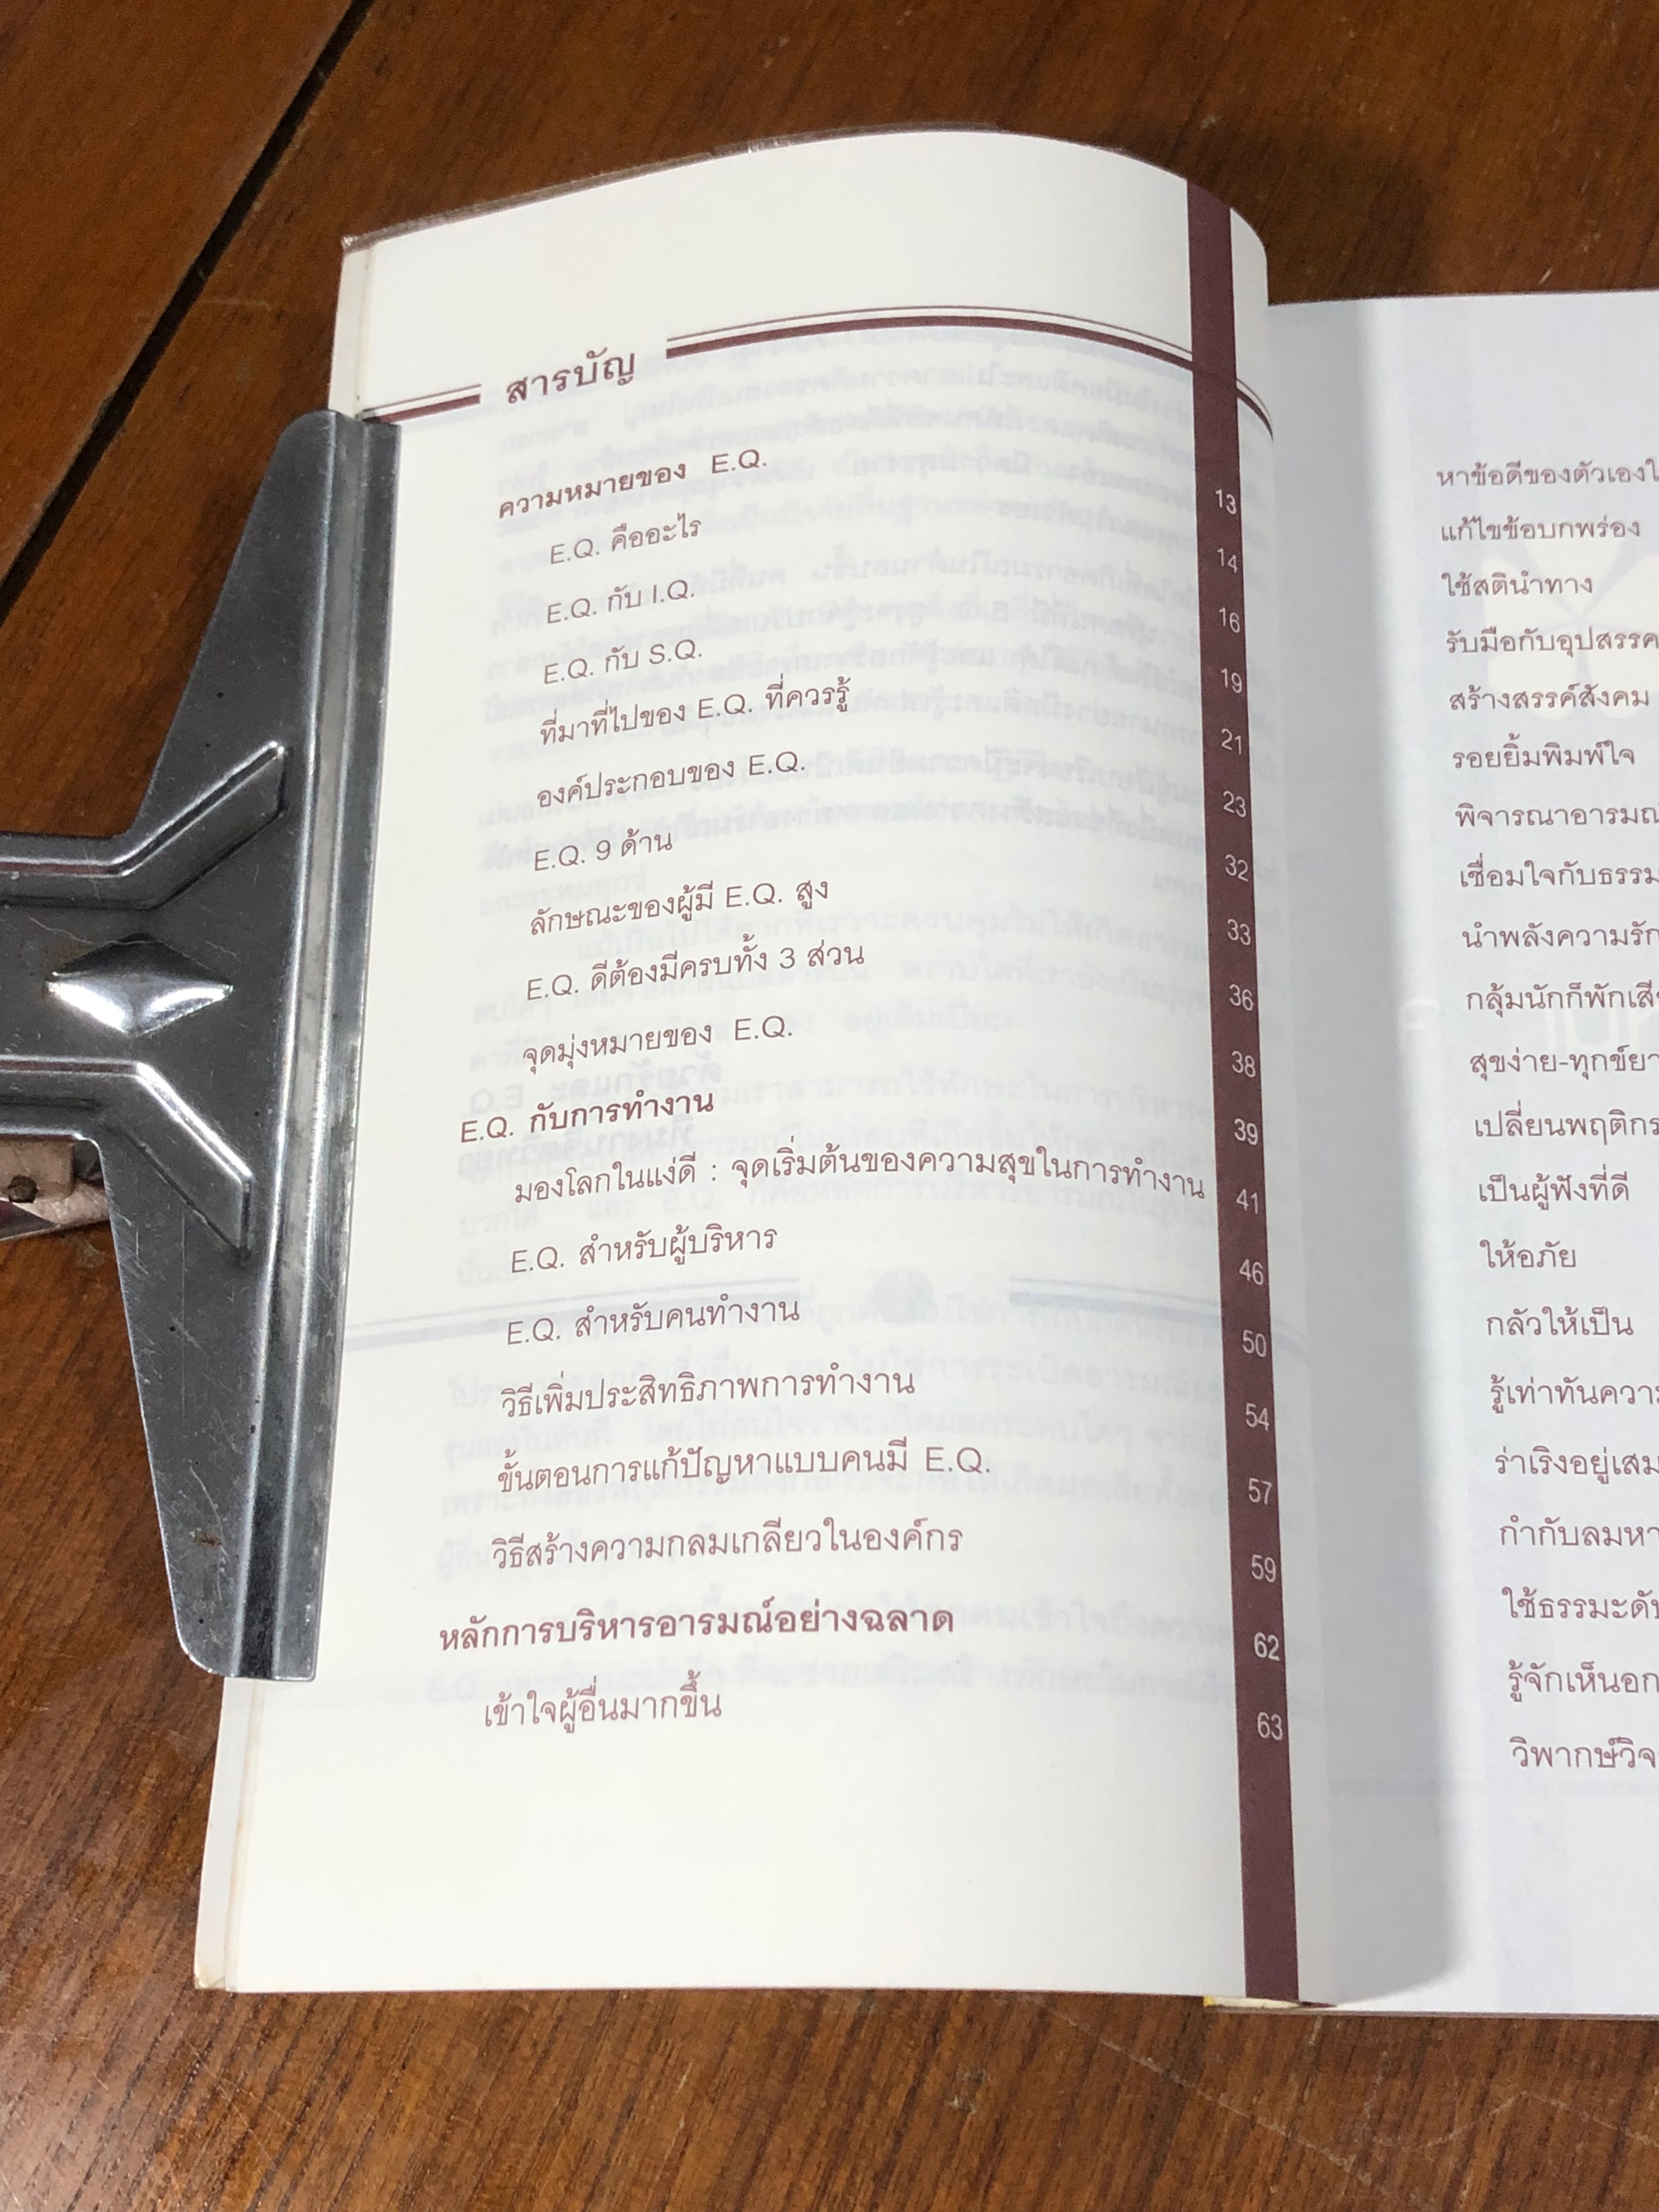 สารบัญ
ความหมายของ E.Q. 13
E.Q. คืออะไร 14
E.Q. กับ I.Q. 16
E.Q. กับ S.Q. 19
ที่มาที่ไปของ E.Q. ที่ควรรู้ 21
องค์ประกอบของ E.Q. 23
E.Q. 9 ด้าน 32
ลักษณะของผู้มี E.Q. สูง 33
E.Q. ดีต้องมีครบทั้ง 3 ส่วน 36
จุดมุ่งหมายของ E.Q. 38
E.Q. กับการทำงาน 39
มองโลกในแง่ดี : จุดเริ่มต้นของความสุขในการทำงาน 41
E.Q. สำหรับผู้บริหาร 46
E.Q. สำหรับคนทำงาน 50
วิธีเพิ่มประสิทธิภาพการทำงาน 54
ขั้นตอนการแก้ปัญหาแบบคนมี E.Q. 57
วิธีสร้างความกลมเกลียวในองค์กร 59
หลักการบริหารอารมณ์อย่างฉลาด 62
เข้าใจผู้อื่นมากขึ้น 63
หาข้อดีของตัวเอง
แก้ไขข้อบกพร่อง
ใช้สตินำทาง
รับมือกับอุปสรรค
สร้างสรรค์สังคม
รอยยิ้มพิมพ์ใจ
พิจารณาอารมณ์
เชื่อมใจกับธรรม
นำพลังความรัก
กลุ้มนักก็พักเสี
สุขง่าย-ทุกข์ยา
เปลี่ยนพฤติกร
เป็นผู้ฟังที่ดี
ให้อภัย
กลัวให้เป็น
รู้เท่าทันความ
ร่าเริงอยู่เสม
กำกับลมหา
ใช้ธรรมะดับ
รู้จักเห็นอก
วิพากษ์วิจ